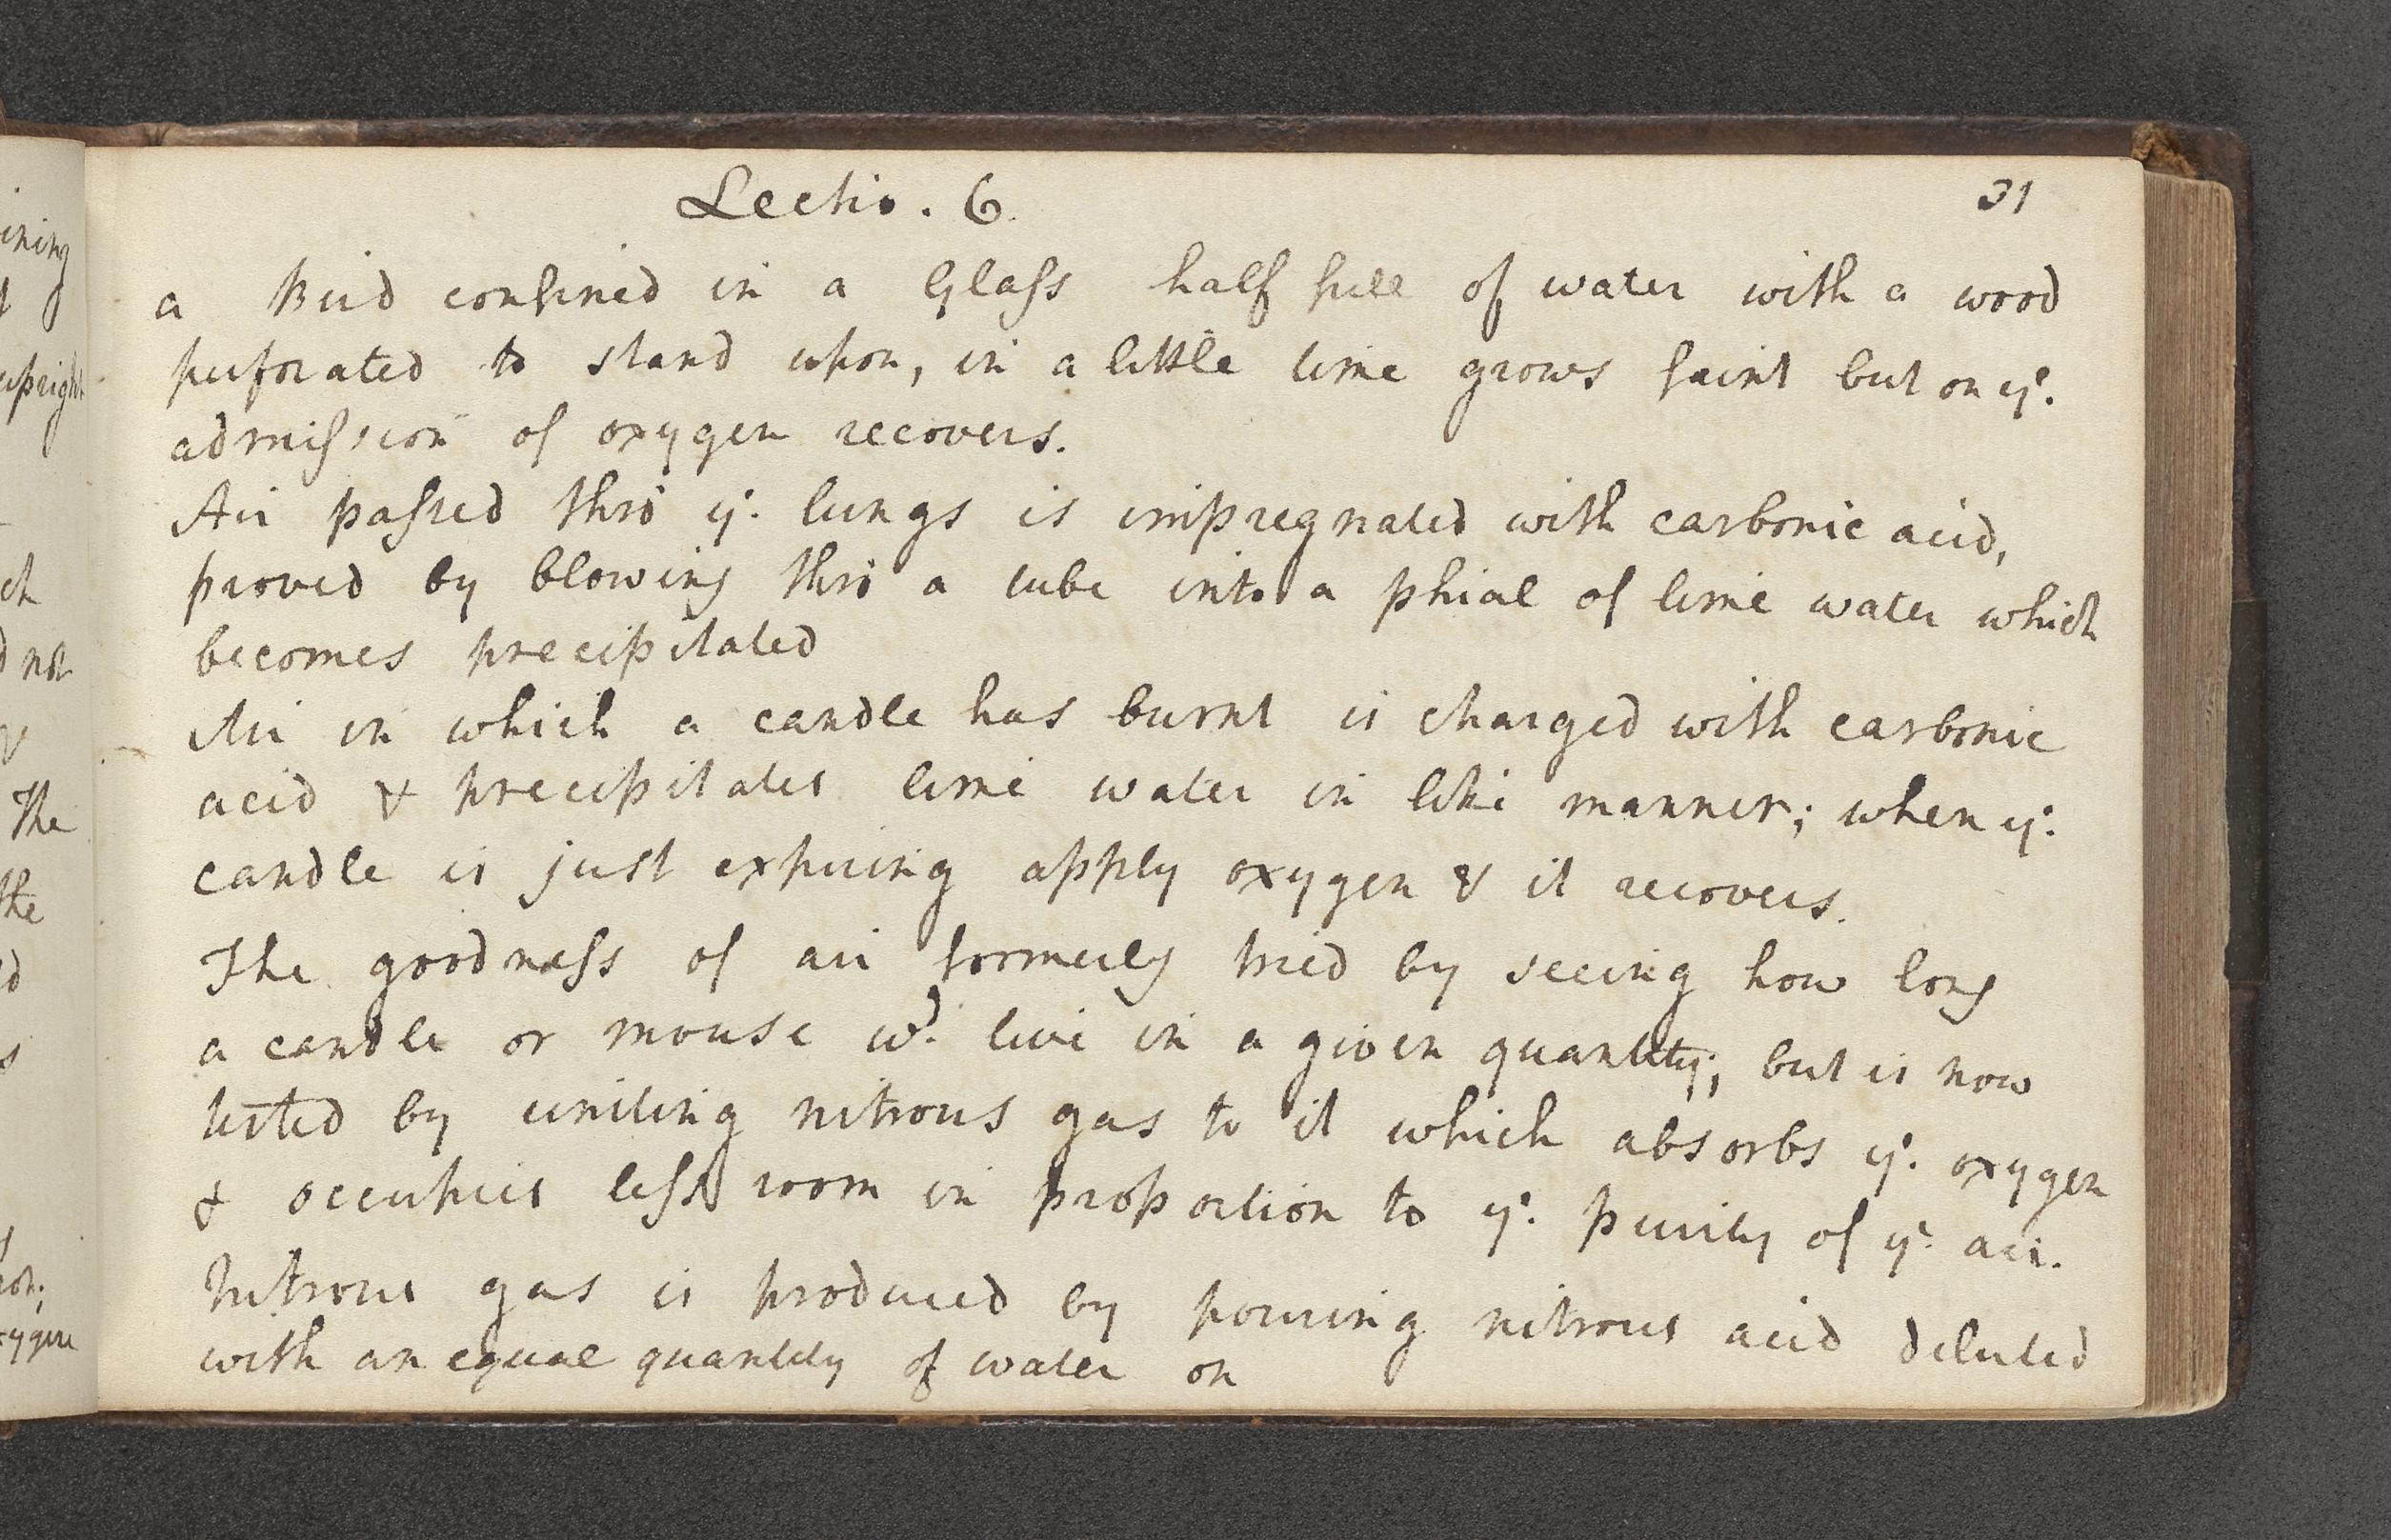 Lectio. 6.
31
a Bird confined in a Glass half full of water with a wood
perforated to stand upon, in a little time grows faint but on ye.
admission of oxygen recovers.
Air passed thro ye. lungs is impregnated with carbonic acid,
proved by blowing thro a tube into a phial of lime water which
becomes precipitated
Air in which a candle has burnt is charged with carbonic
acid & precipitates lime water in like manner; when ye.
candle is just expiring apply oxygen & it recovers.
The goodness of air formerly tried by seeing how long
a candle or mouse wd. live in a given quantity; but is now
tested by uniting nitrous gas to it which absorbs ye. oxygen
& occupies less room in proportion to ye. purity of ye. air.
Nitrous gas is produced by pouring nitrous acid diluted
with an equal quantity of water on
ining
upright
ch
d not
&
The
the